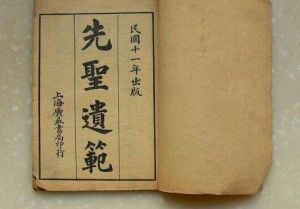 民國十一年出版
先聖遺範
上海廣益書局印行